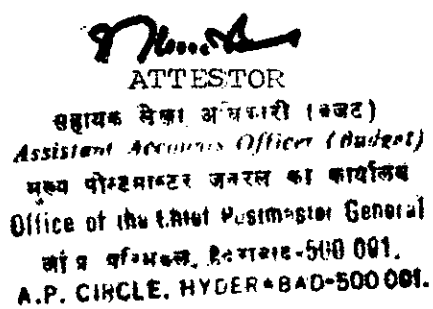 ATTESTOR
सहायक लेखा अधिकारी (बजट)
Assistant Accounts Officer (Budget)
मुख्य पोस्टमास्टर जनरल का कार्यालय
Office of the Chief Postmaster General
आं प्र परिमंडल, हैदराबाद-500 001.
A.P. CIRCLE, HYDERABAD-500 001.